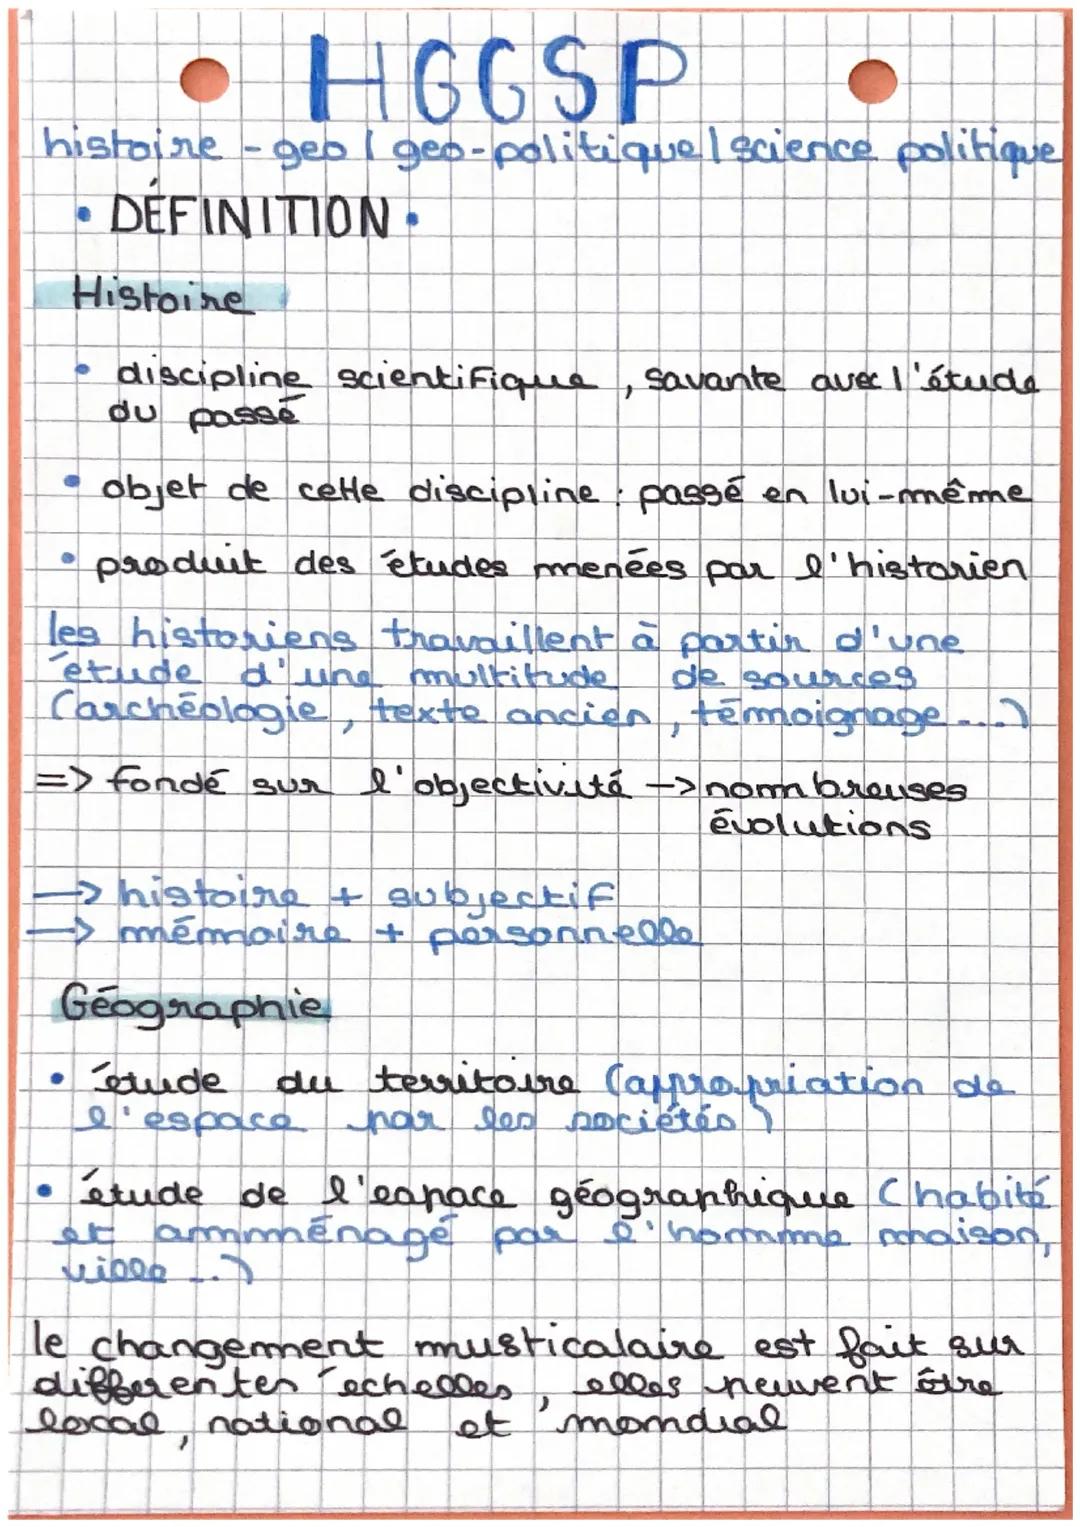 HGGSP
histoire - geo / geo-politique / science politique
• DÉFINITION •
Histoire
• discipline scientifique, savante avec l'étude
du passé
• objet de cette discipline : passé en lui-même
• produit des études menées par l'historien
les historiens travaillent à partir d'une
étude d'une multitude de sources
(archéologie, texte ancien, témoignage...)
=> fondé sur l'objectivité -> nombreuses
évolutions
-> histoire + subjectif
-> mémoire + personnelle
Géographie
• étude du territoire (appropriation de
l'espace par les sociétés)
• étude de l'espace géographique (habité
et amménagé par l'homme maison,
ville...)
le changement musticalaire est fait sur
differentes échelles, elles peuvent être
local, national et mondial